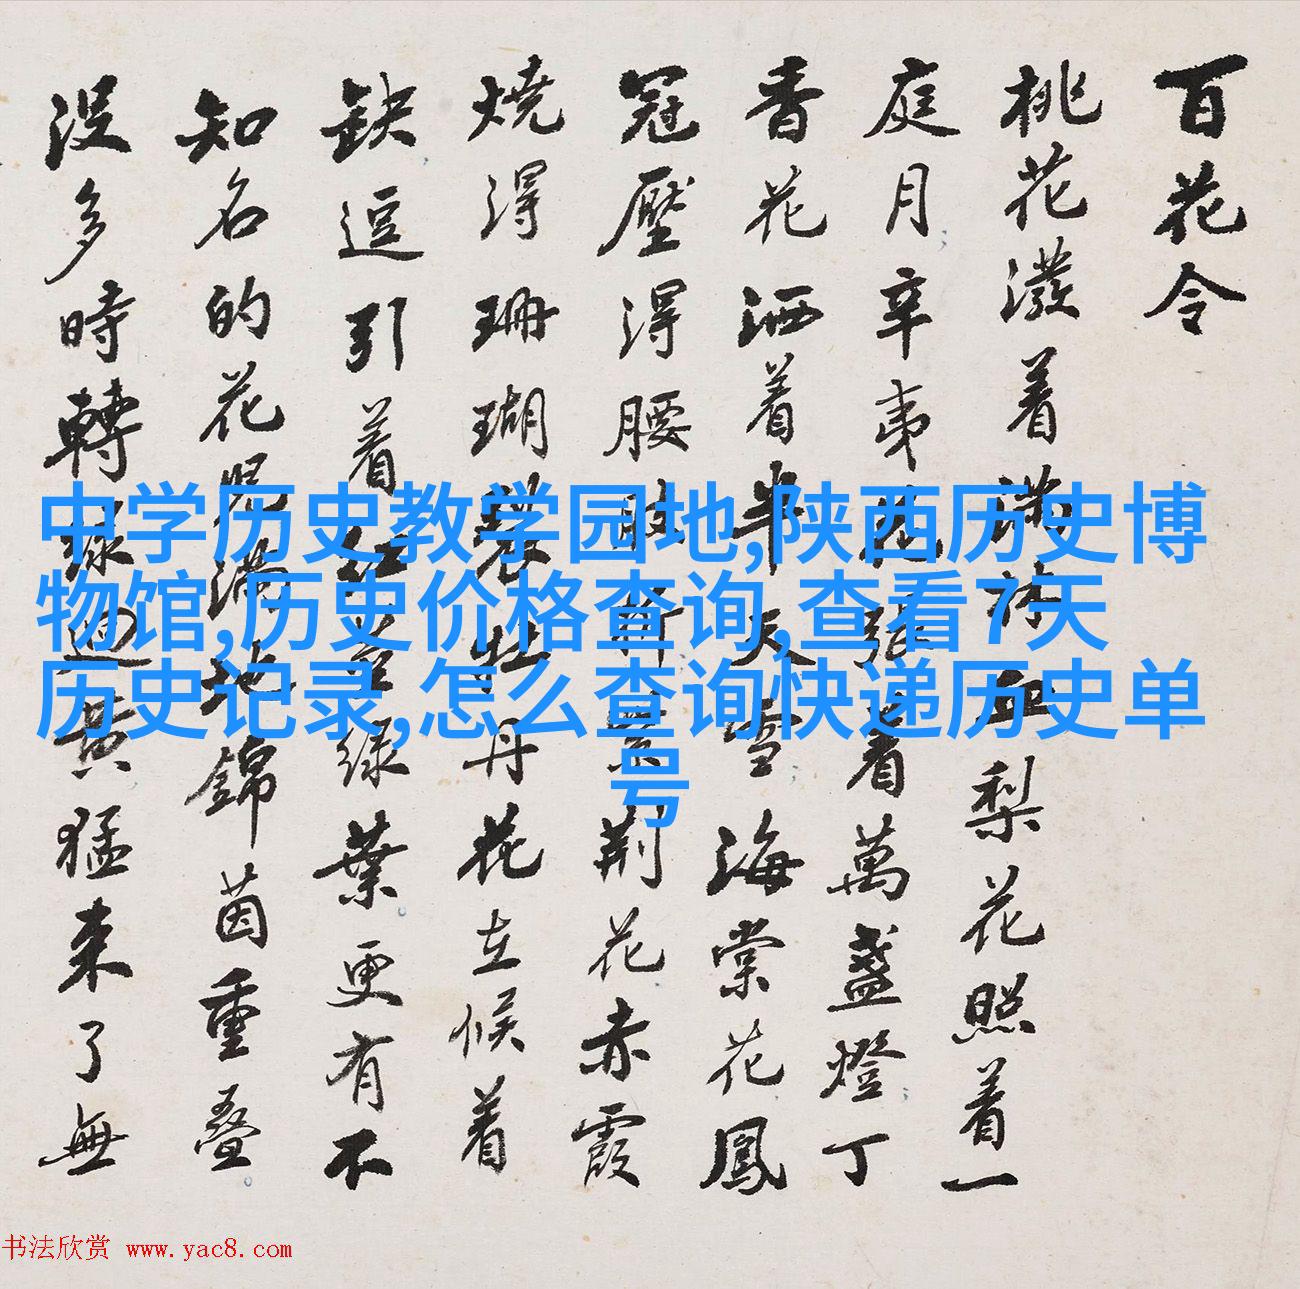 百花令
桃花潑着滿林血梨花照着一
庭月辛夷花張着萬盞燈丁
香花洒着半天雪海棠花鳳
冠壓得腰肢折紫荆花赤霞
燒得珊瑚裂牡丹花立候着
缺逗引着紅綠葉更有不
知名的花兒滿地錦茵重疊
没多時轉綠迴黄猛来了無
中学历史教学园地,陕西历史博
物馆,历史价格查询,查看7天
历史记录,怎么查询快递历史单
号
书法欣赏 www.yac8.com